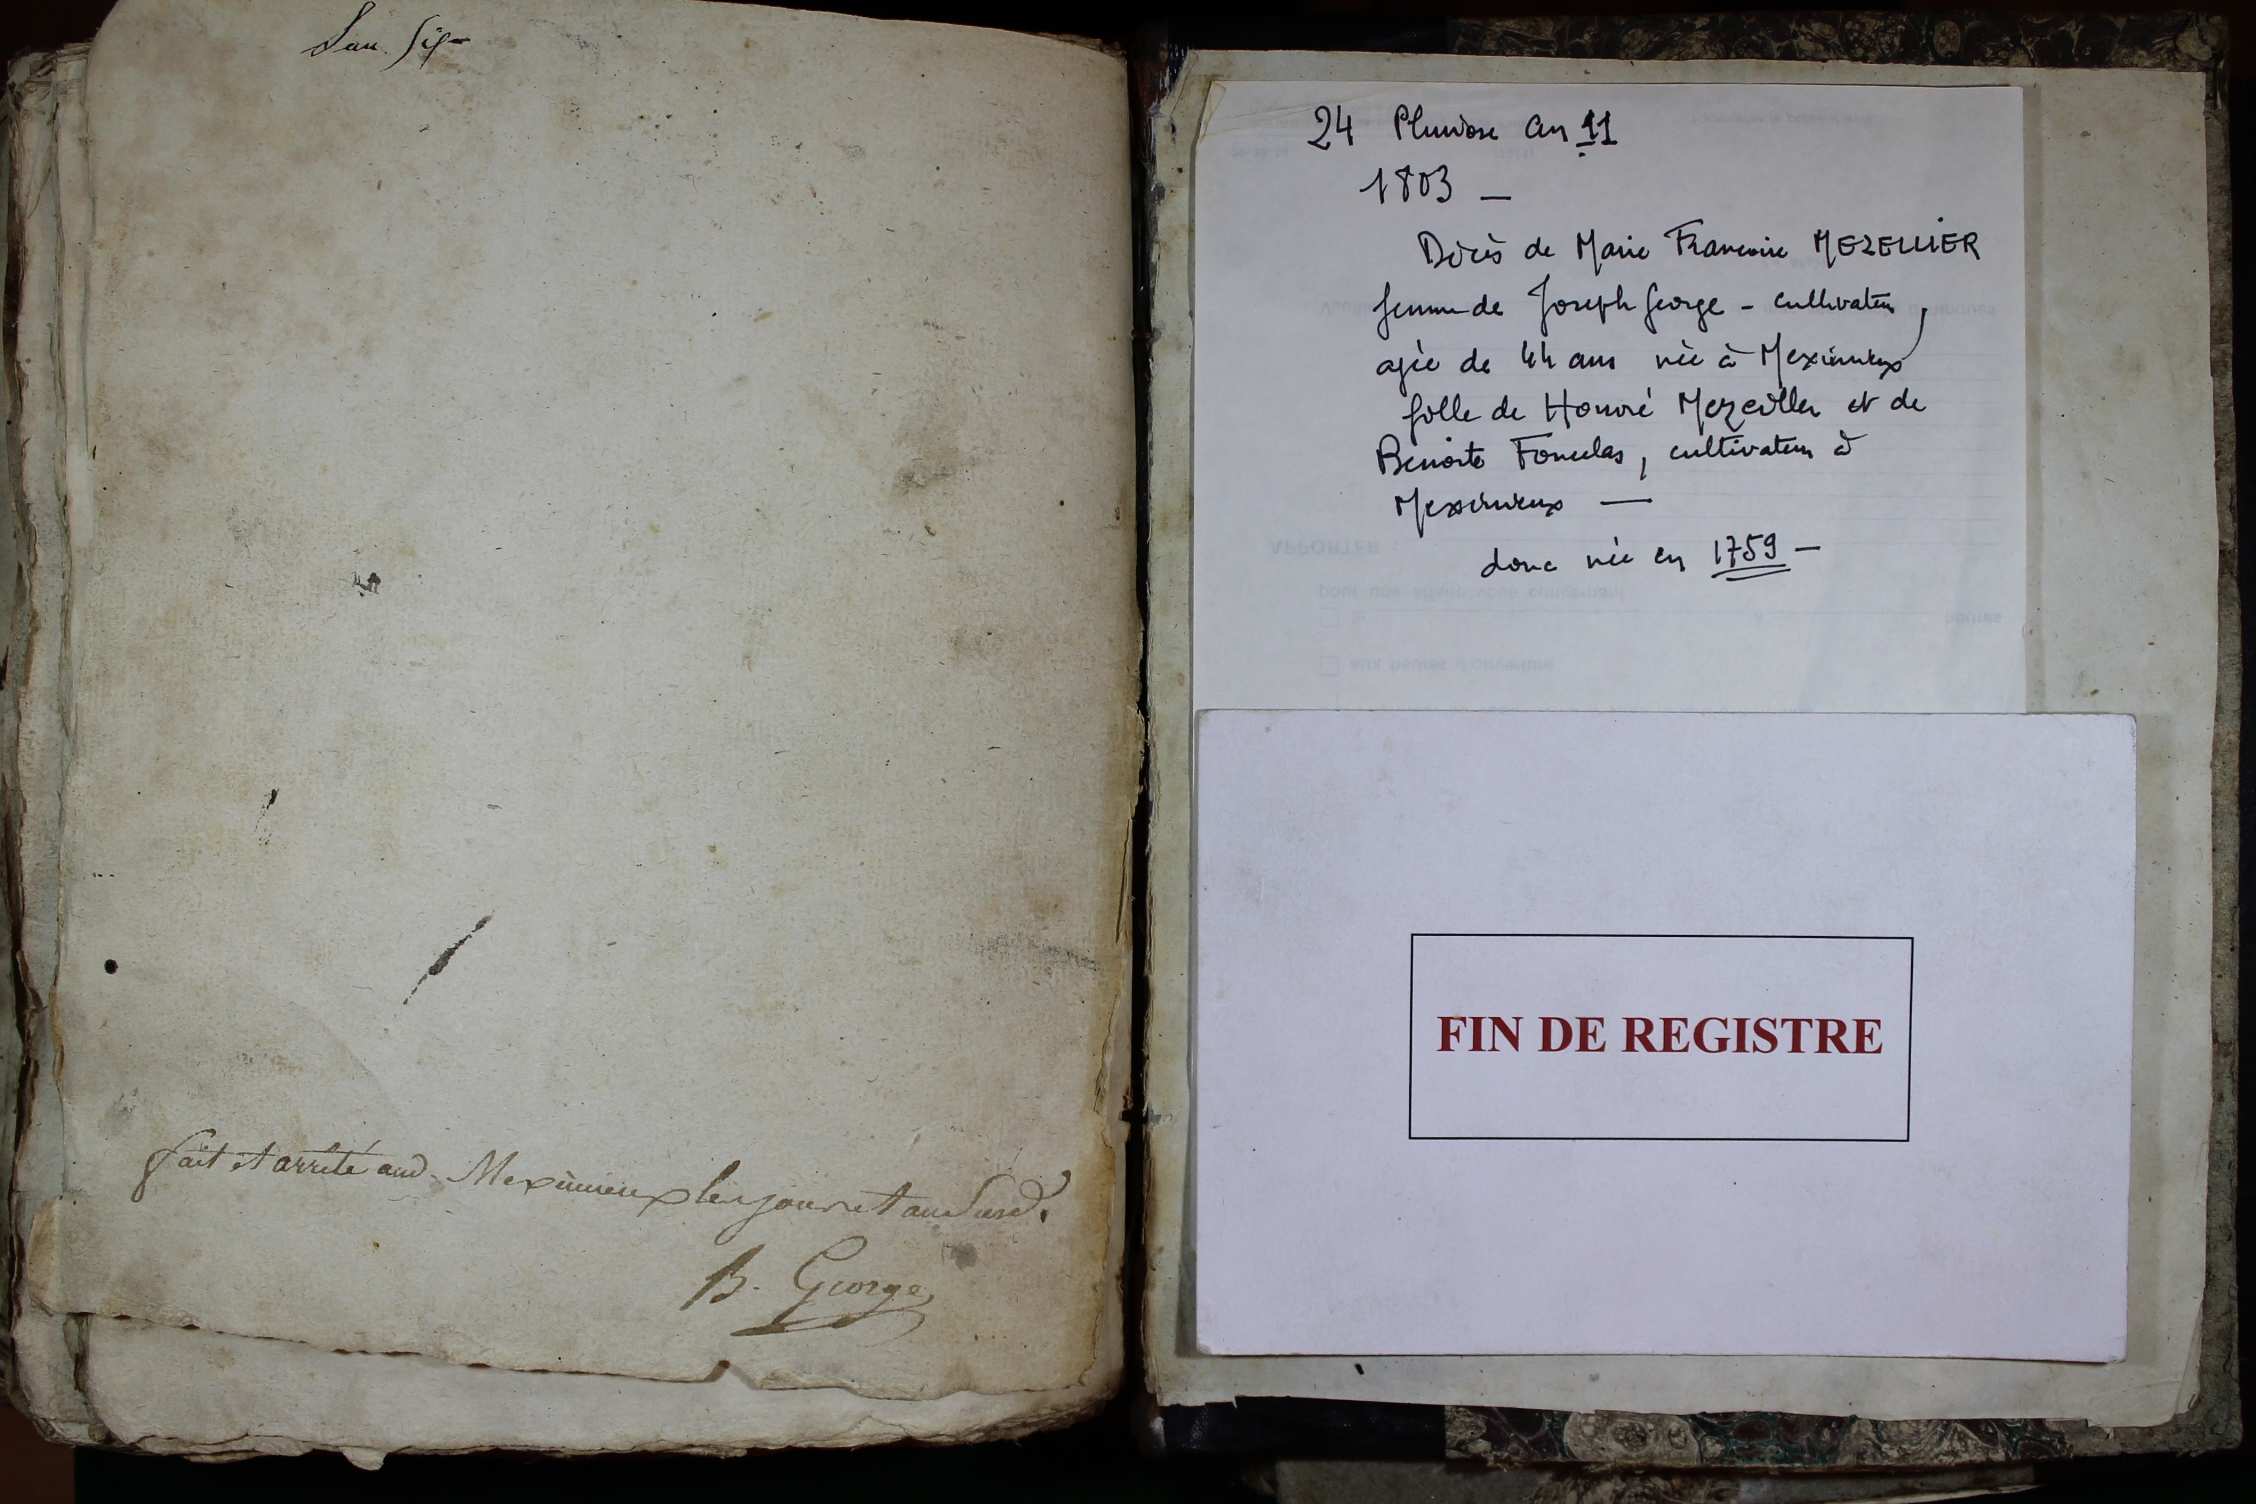 L'an Six
fait et arrêté aud. Meximieux les jour et an Susd.
B. George
24 Pluviose an 11
1803 —
Décès de Marie Françoise MEZELLIER
femme de Joseph George - cultivateur,
agée de 44 ans née à Meximieux
fille de Honoré Mezeiller et de
Benoite Foncelas, cultivateur à
Meximieux —
donc née en 1759 —
APPORTER :
FIN DE REGISTRE